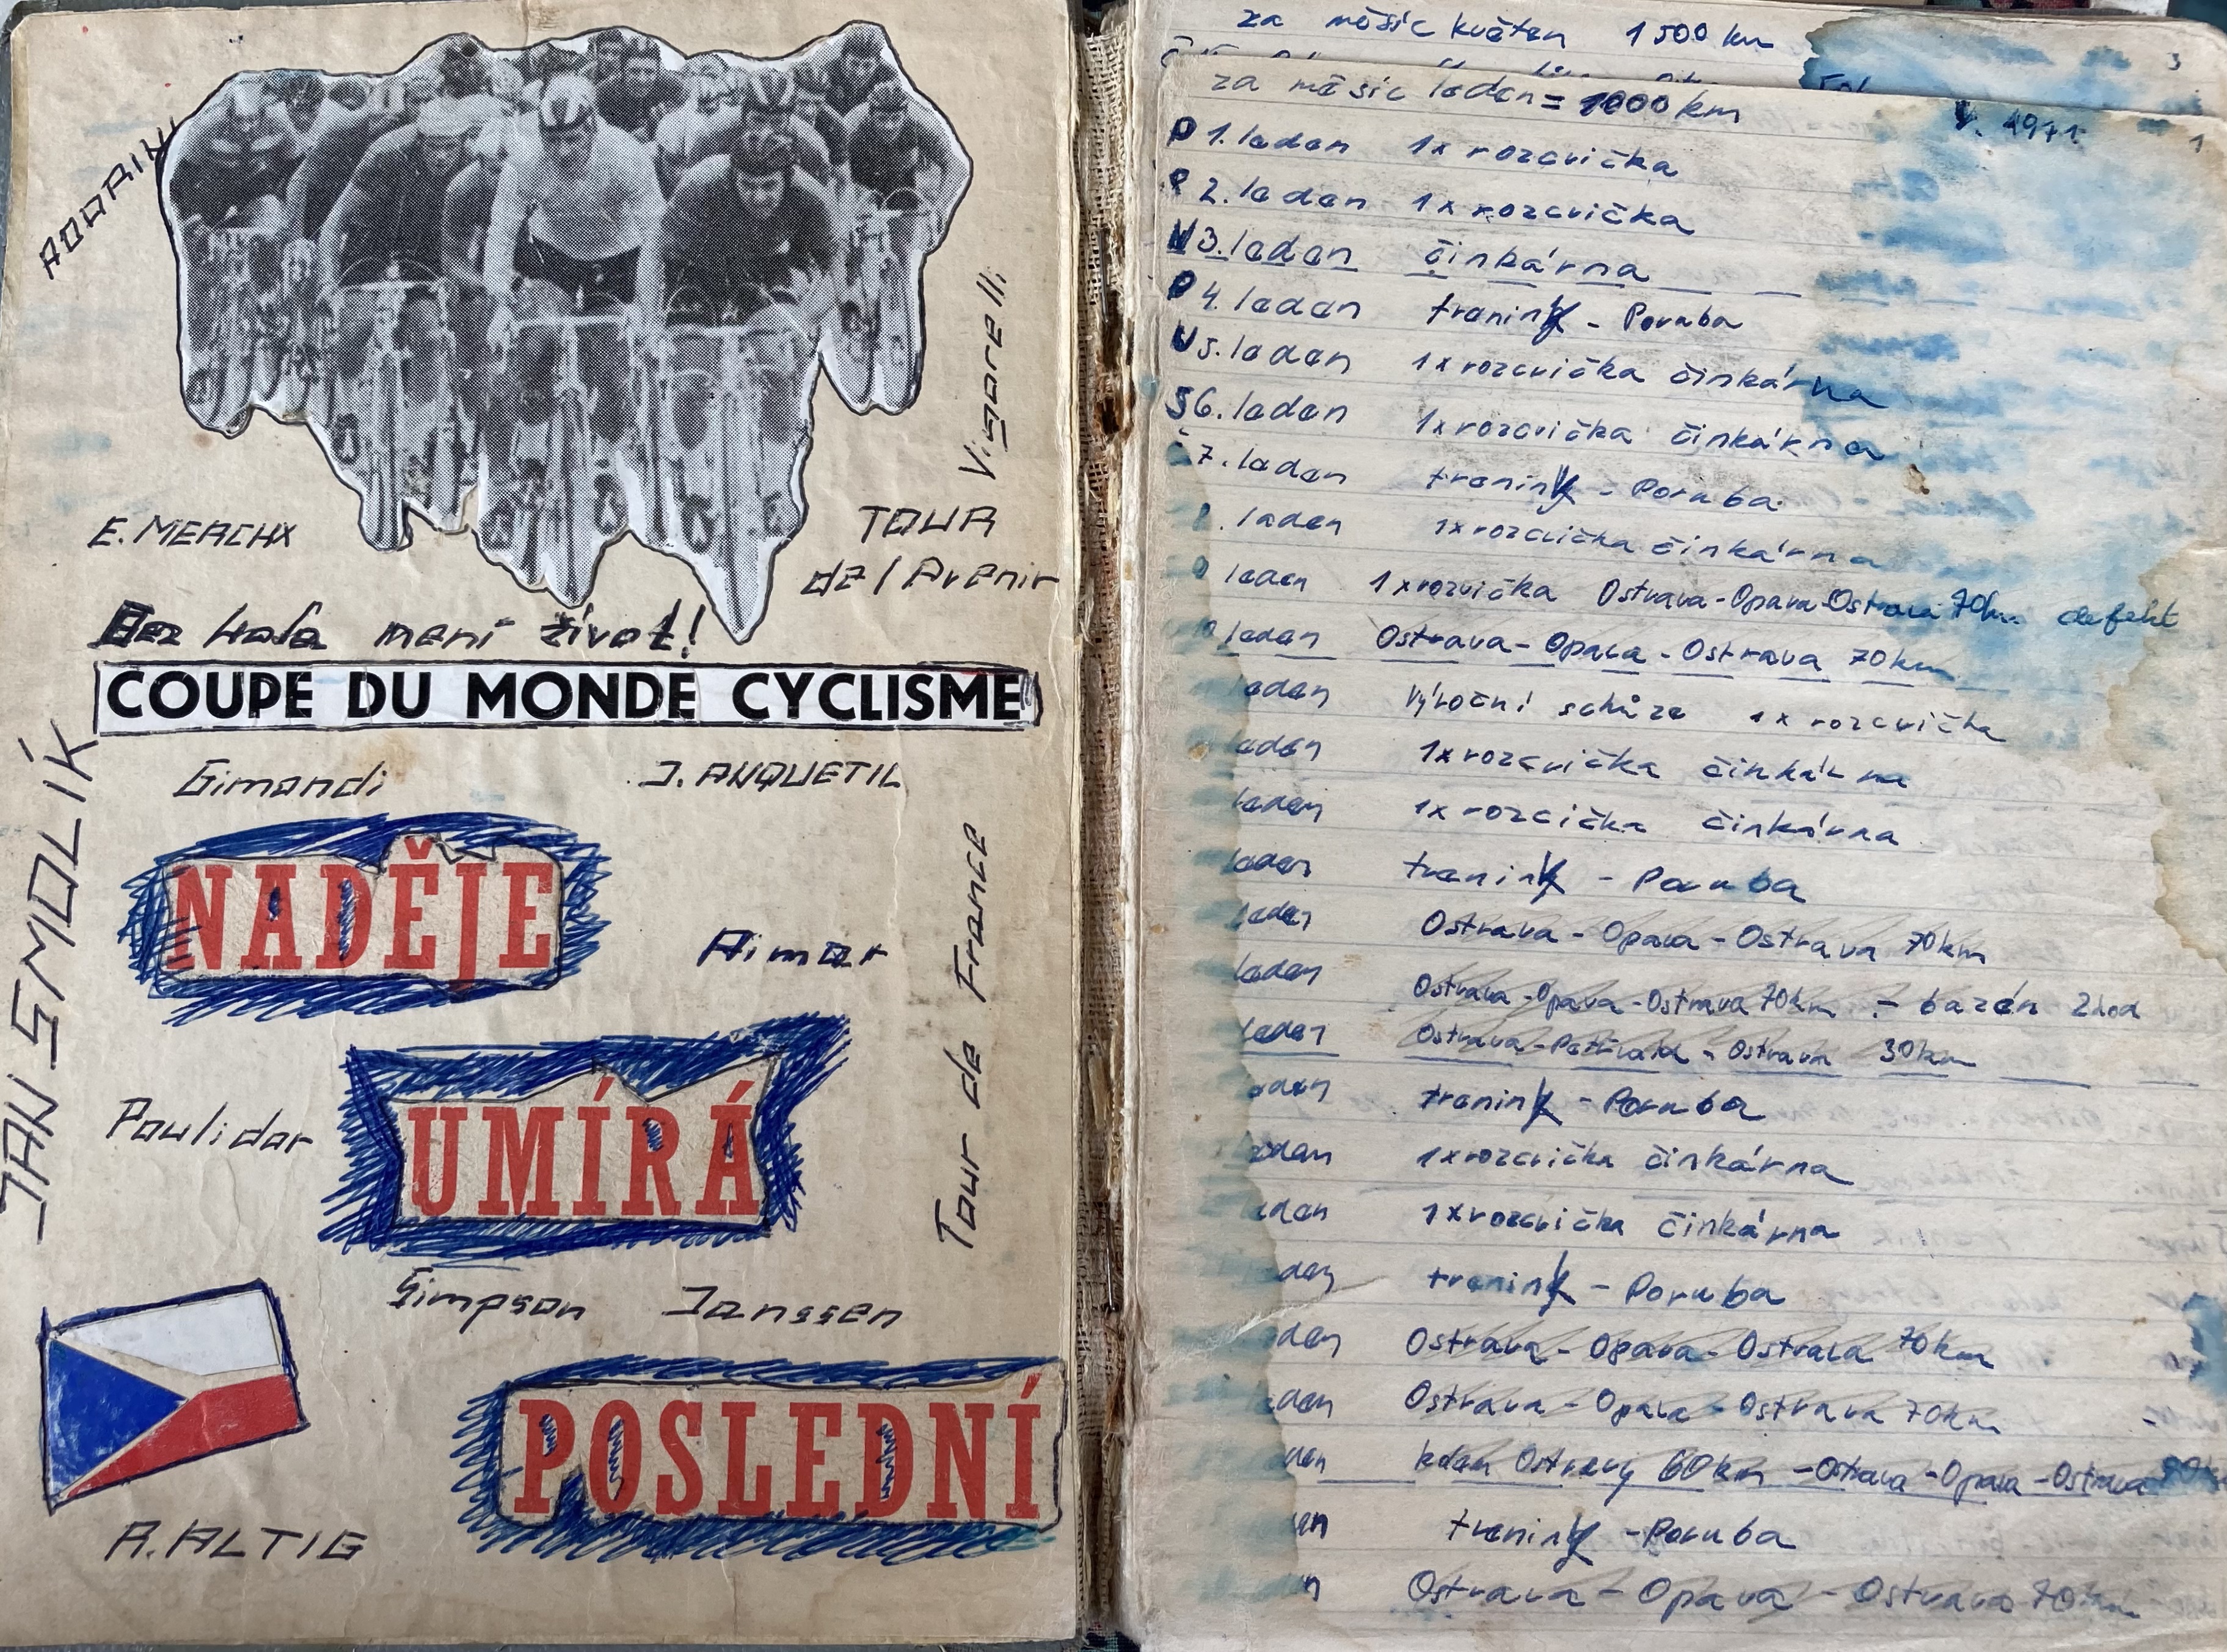 ADORIN
E. MERCHX
Vigorelli
TOUR
de l Avenir
Bez kola není život!
COUPE DU MONDE CYCLISME
JAN SMOLÍK
Gimondi
J. ANQUETIL
NADĚJE
Aimar
Tour de France
Poulidor
UMÍRÁ
Simpson Janssen
POSLEDNÍ
R. ALTIG
za měsíc květen 1500 km
3
za měsíc leden = 1000 km
r. 1971
1
P 1. leden 1x rozcvička
2. leden 1x rozcvička
N 3. leden činkárna
P 4. leden trenink - Poruba
U 5. leden 1x rozcvička činkárna
S 6. leden 1x rozcvička činkárna
Č 7. leden trenink - Poruba
leden 1x rozcvička činkárna
leden 1x rozvička Ostrava-Opava-Ostrava 70km defekt
leden Ostrava - Opava - Ostrava 70 km
leden výroční schůze 1x rozcvička
leden 1x rozcvička činkárna
leden 1x rozcvička činkárna
leden trenink - Poruba
leden Ostrava - Opava - Ostrava 70km
leden Ostrava - Opava - Ostrava 70km - bazén 2hod
leden Ostrava - Petřvald - Ostrava 30km
eden trenink - Poruba
eden 1x rozcvička činkárna
eden 1x rozcvička činkárna
den trenink - Poruba
den Ostrava - Opava - Ostrava 70km
den Ostrava - Opava - Ostrava 70km
den kolem Ostravy 60km - Ostrava - Opava - Ostrava
en trenink - Poruba
n Ostrava - Opava - Ostrava 70km